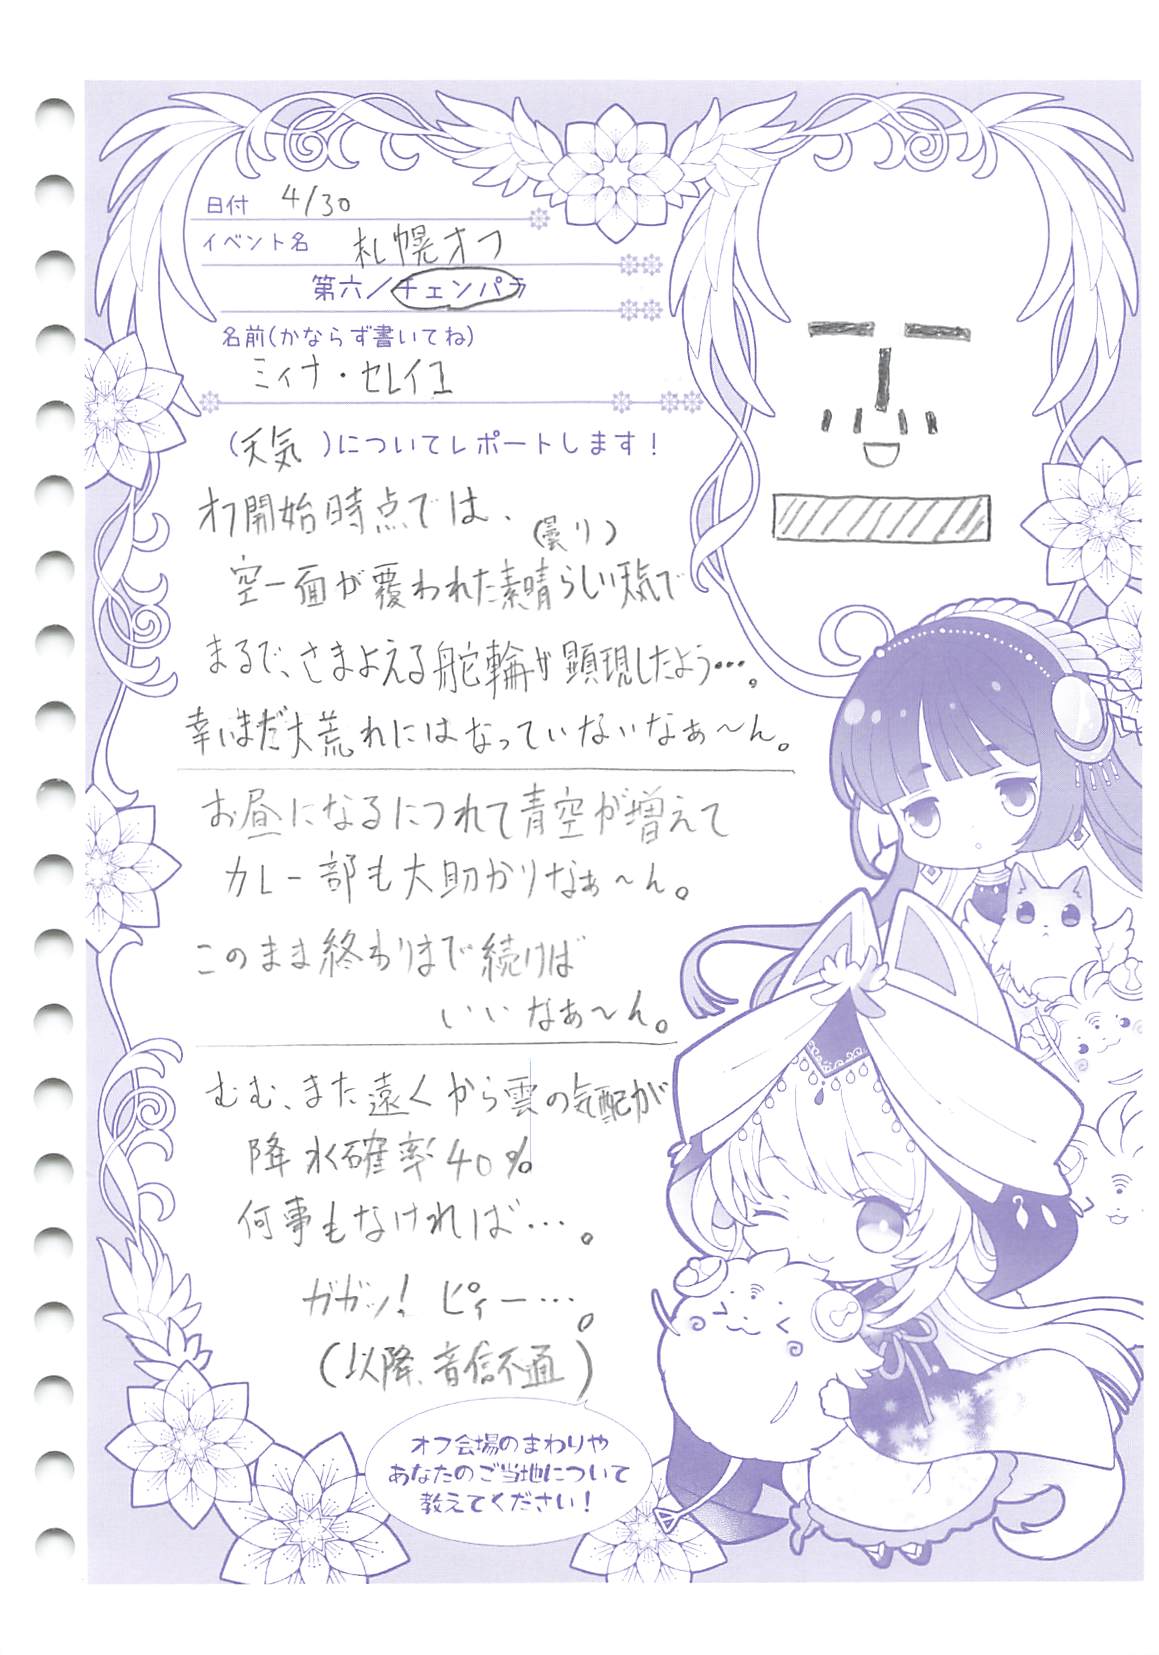 日付 4/30
イベント名 札幌オフ
第六/チェンパラ
名前(かならず書いてね)
ミィナ・セレイユ
(天気 )についてレポートします!
オフ開始時点では、
(曇り)
空一面が覆われた素晴らしい天気で
まるで、さまよえる舵輪が顕現したよう…。
幸いまだ大荒れにはなっていないなぁ〜ん。
お昼になるにつれて青空が増えて
カレー部も大助かりなぁ〜ん。
このまま終わりまで続けば
いいなぁ〜ん。
むむ、また遠くから雲の気配が
降水確率40%
何事もなければ…。
ガガッ! ピィー…。
(以降、音信不通)
オフ会場のまわりや
あなたのご当地について
教えてください!